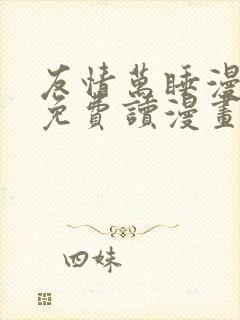 友情萬睡漫
免費讀漫畫
四妹